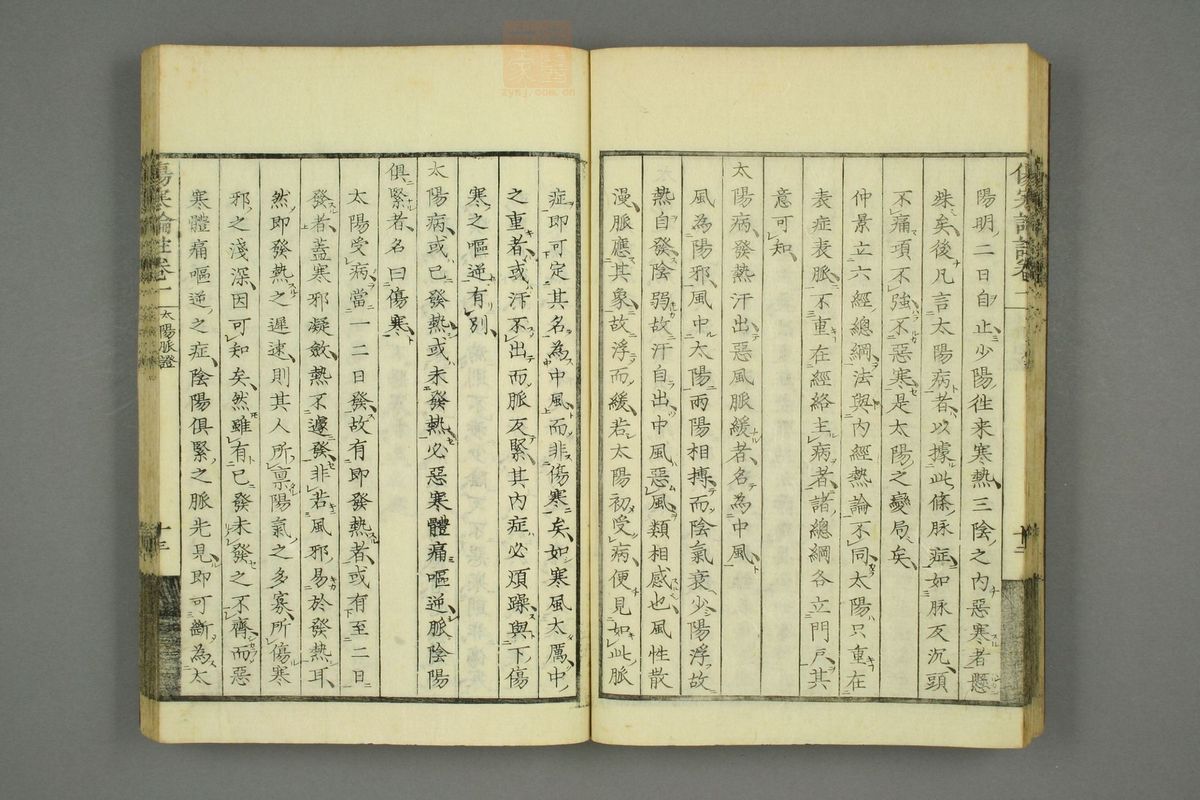 陽明二日自止少陽徃来寒熱三陰之内惡寒者懸
殊矣後凡言太陽病者以據此條脉症如脉反沉頭
不痛項不強不惡寒是太陽之變局矣
仲景立六經總綱法與内經熱論不同太陽只重在
表症表脉不重在經絡主病者諸總綱各立門戸其
意可知
太陽病發熱汗出惡風脈緩者名為中風
風為陽邪風中太陽兩陽相搏而陰氣衰少陽浮故
熱自發陰弱故汗自出中風惡風類相感也風性散
漫脈應其象故浮而緩若太陽初受病便見如此脈
症即可定其名為中風而非傷寒矣如寒風太厲中
之重者或汗不出而脈反緊其内症必煩躁與下傷
寒之嘔逆有別
太陽病或已發熱或未發熱必惡寒體痛嘔逆脈陰陽
俱緊者名曰傷寒
太陽受病當一二日發故有即發熱者或有至二日
發者蓋寒邪凝斂熱不遽發非若風邪易於發熱耳
然即發熱之遲速則其人所禀陽氣之多寡所傷寒
邪之淺深因可知矣然雖有已發未發之不齊而惡
寒體痛嘔逆之症陰陽俱緊之脈先見即可斷為太
傷寒論註卷一
太陽脈證
十三
zysj.com.cn